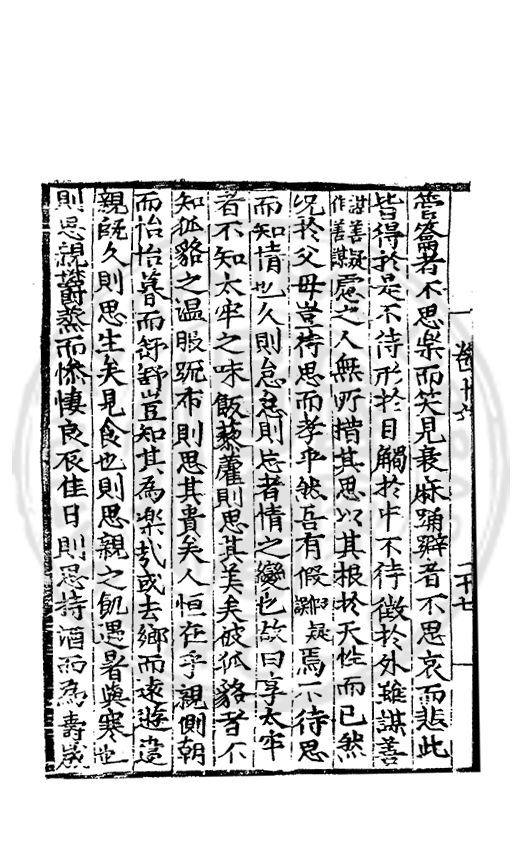 管籥者不思樂而笑見衰麻踊辟者不思哀而悲此
皆得於是不待形於目觸於中不待徵於外雖謀善
謀善疑作善謀慮之人無所措其思以其根於天性而已然
況於父母豈待思而孝乎然吾有假謀假疑焉不待思
而知情也久則怠怠則忘者情之變也故曰享太牢
者不知太牢之味飯藜藿則思其美矣被狐貉者不
知狐貉之温服疏布則思其貴矣人恒在乎親側朝
而怡怡暮而舒舒豈知其為樂哉或去鄉而遠遊違
親既久則思生矣見食也則思親之飢遇暑與寒也
則思親欝蒸而慘悽良辰佳日則思持酒而為壽歲
卷十六
二十七